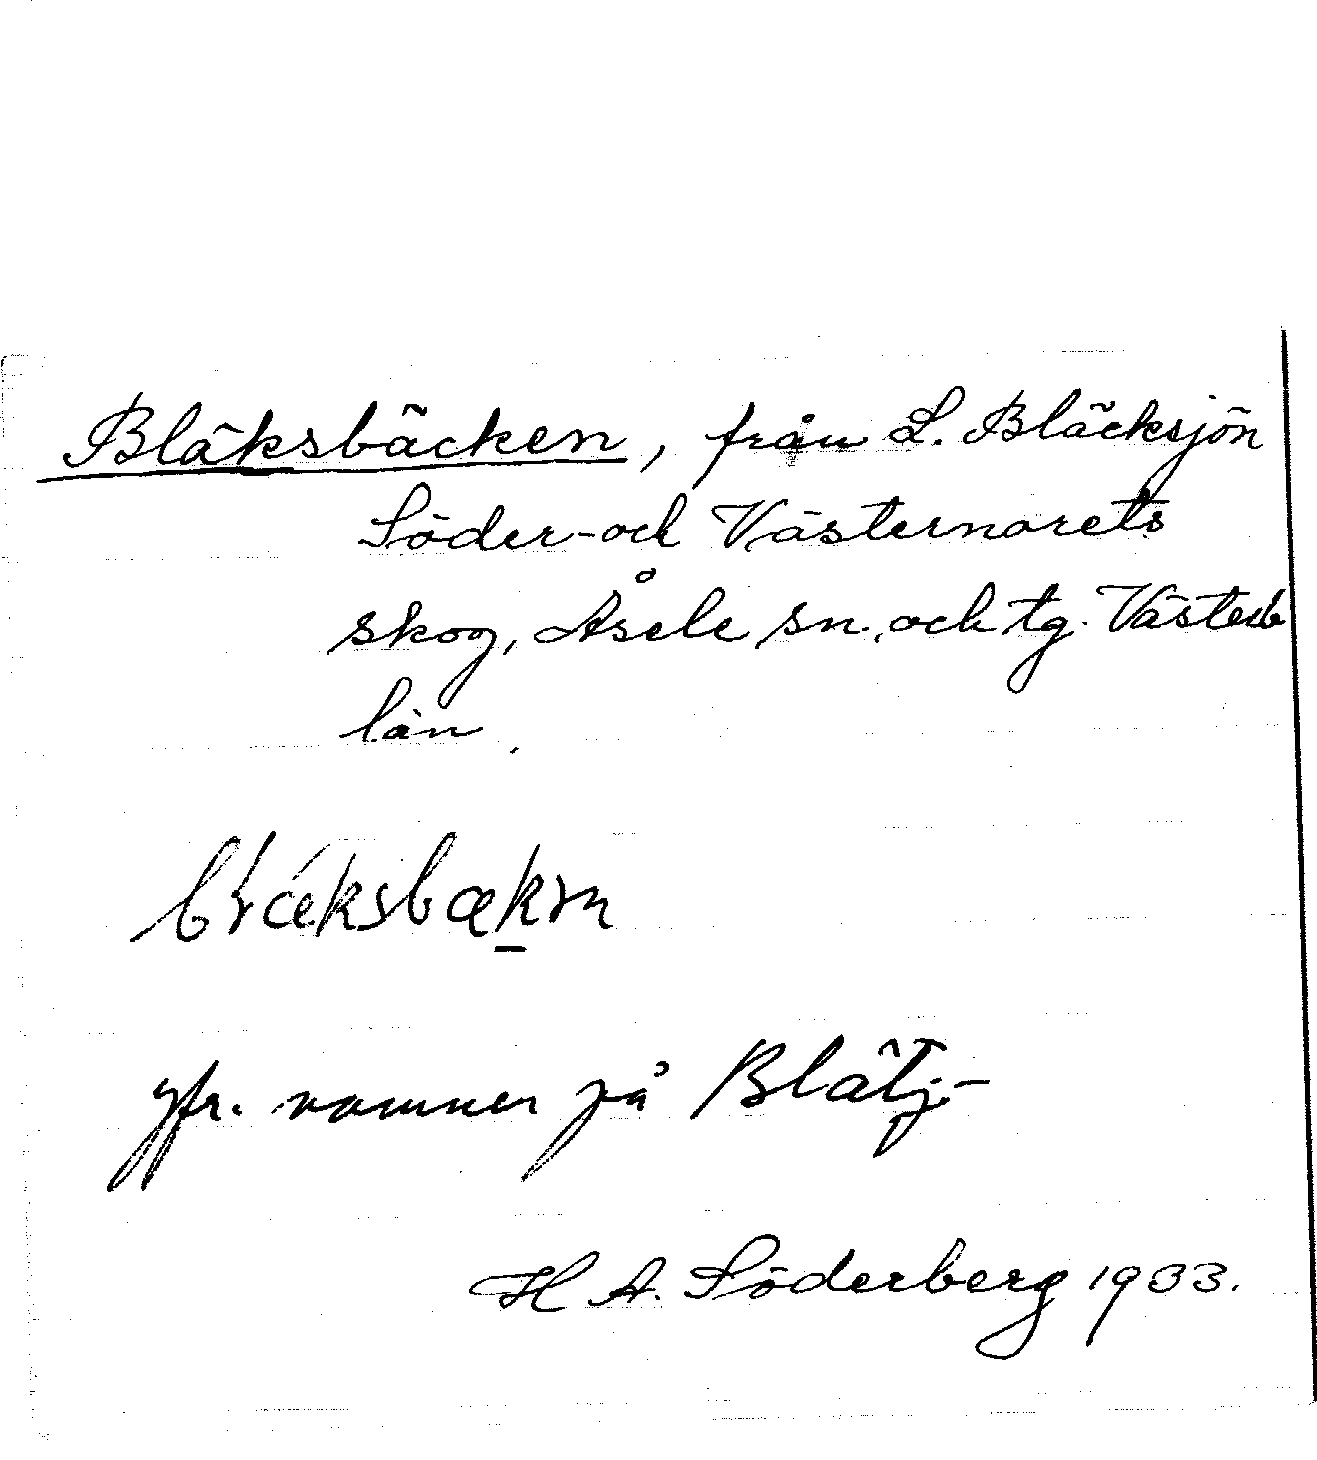 Bläksbäcken, från L. Bläcksjön
Söder- och Västernorets
skog, Åsele sn. och tg. Västerb
län.
jfr. namnen på Blätj-
H A. Söderberg 1933.